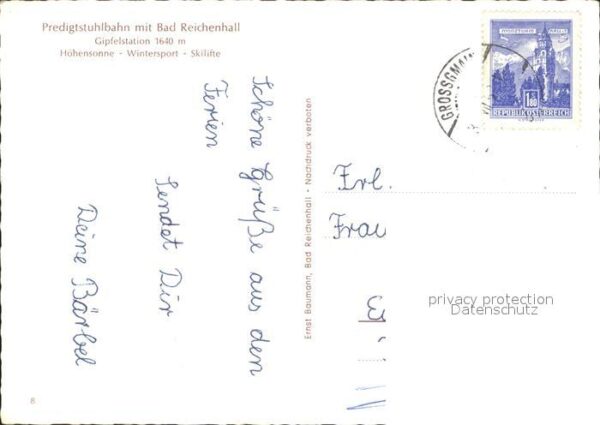 Predigtstuhlbahn mit Bad Reichenhall
Gipfelstation 1640 m
Höhensonne - Wintersport - Skilifte
Schöne Grüße aus den
Ferien
Sendet Dir
Deine Bärbel
Ernst Baumann, Bad Reichenhall - Nachdruck verboten
GROSSGMAIN
1.80
REPUBLIK ÖSTERREICH
Frl.
Frau
privacy protection
Datenschutz
8